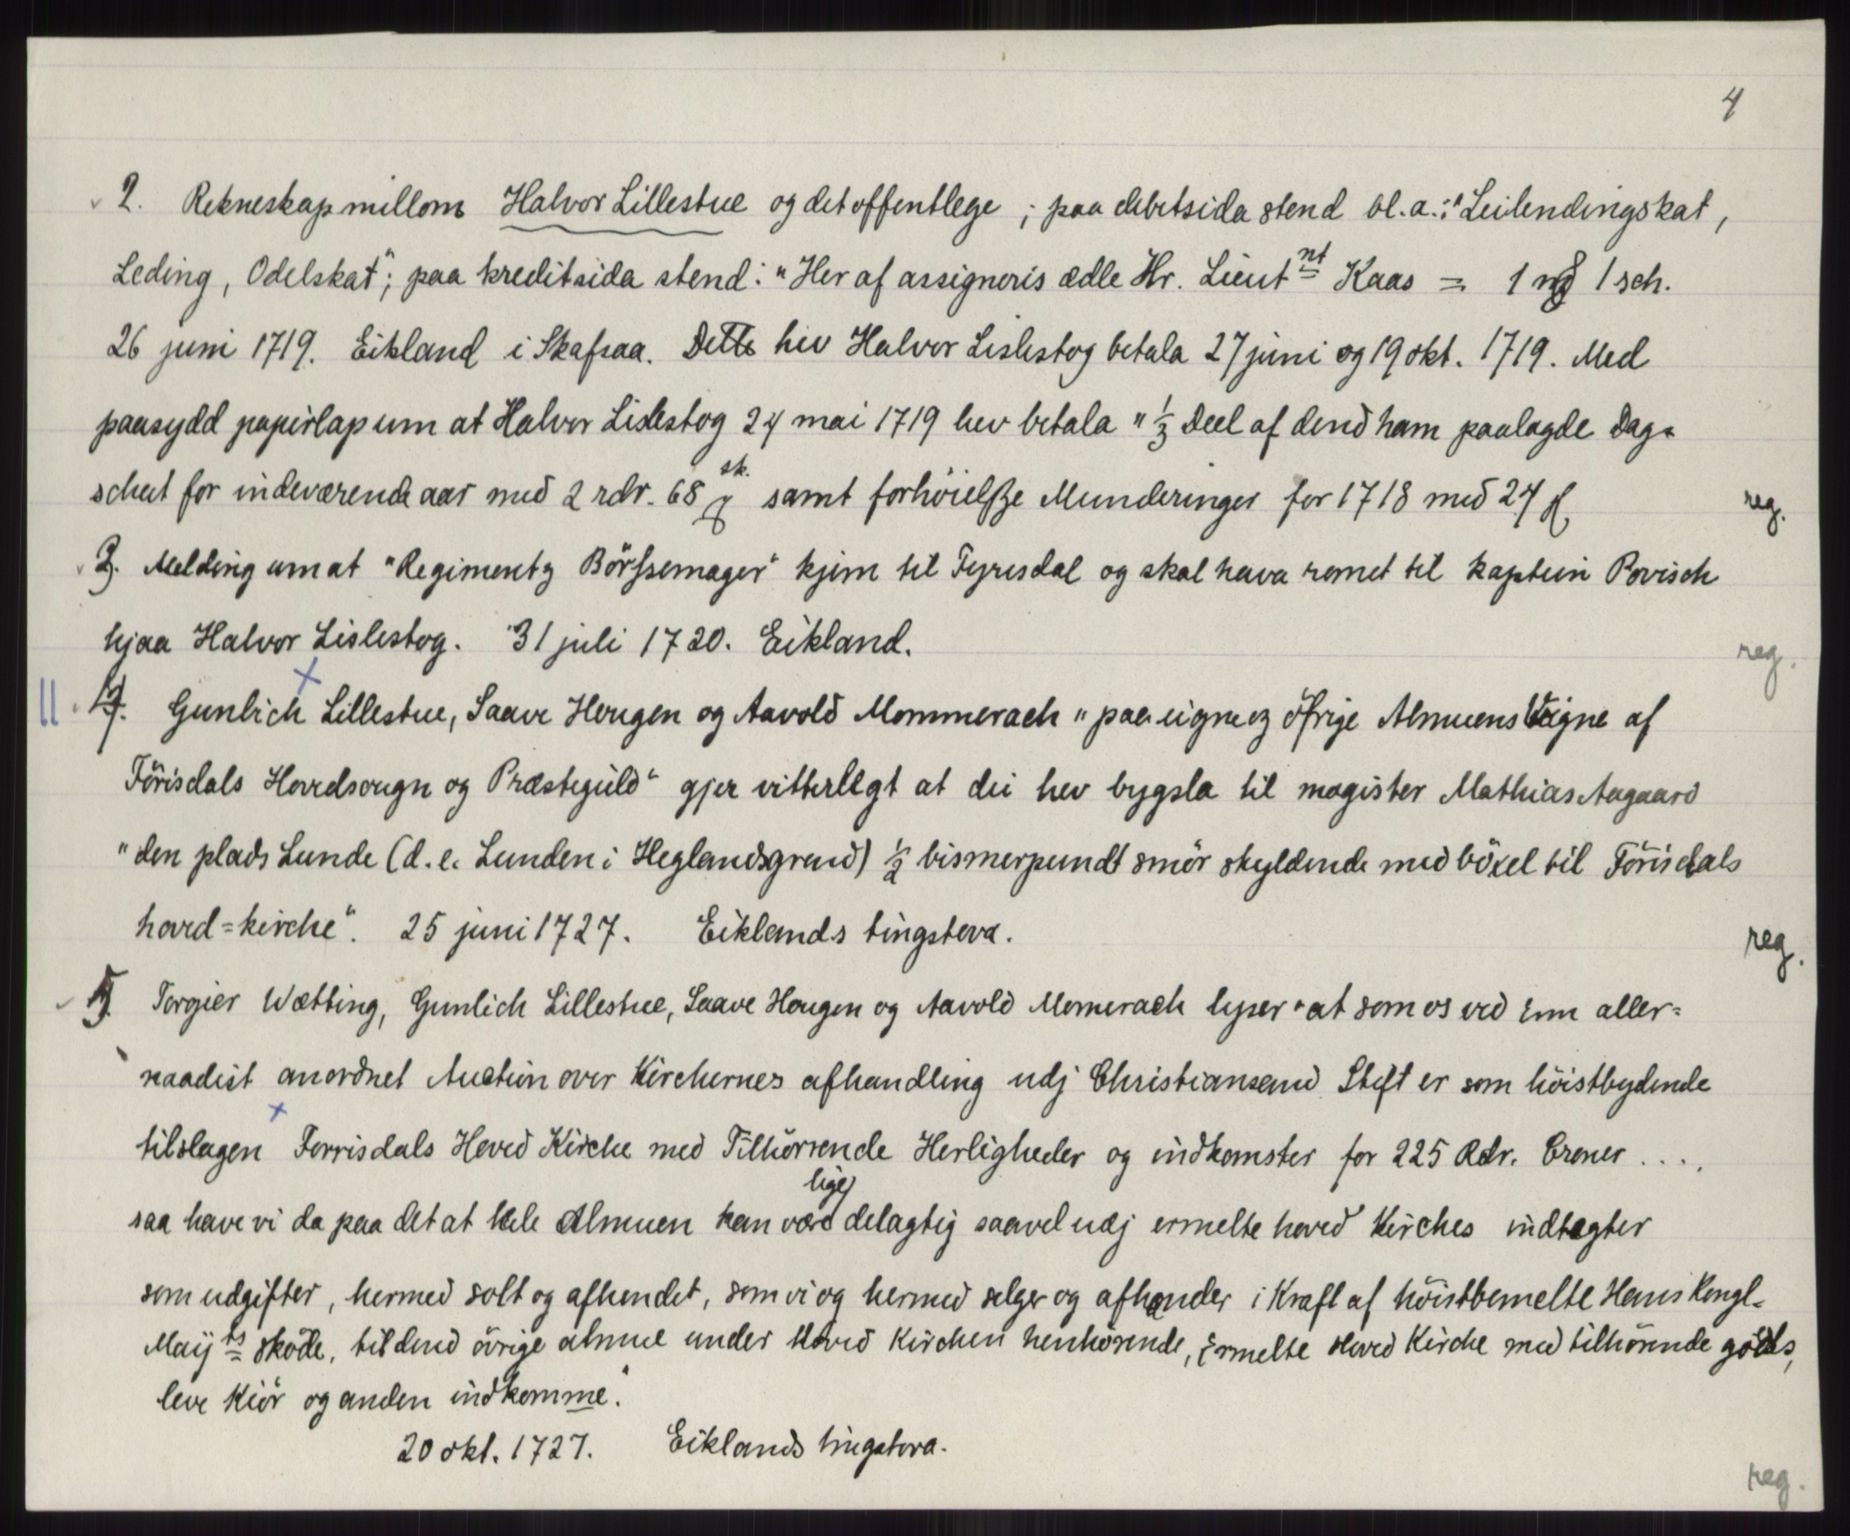 4
2. Rekneskap millom Halvor Lillestue og det offentlege ; paa debetsida stend bl.a.: "Leilendingskat,
Leding, Odelskat"; paa kreditsida stend: "Her af assigneris ædle Hr. Lieutnt Kaas = 1 1 sch.
26 juni 1719. Eikland i Skafsaa. Dette hev Halvor Lislestog betala 27 juni og 19 okt. 1719. Med
paasydd papirlap um at Halvor Lislestog 24 mai 1719 hev betala "⅓ Deel af dend ham paalagde Dag=
schat for indeværende aar med 2 rdr. 68 sk. samt forhöielsze Munderinger for 1718 med 24 reg.
3. Melding um at "Regimentz Börssemager" kjem til Tyrisdal og skal hava romet til kaptein Povisch
hjaa Halvor Lislestog. 31 juli 1720. Eikland. reg.
4. Gunlich Lillestue, Saave Hougen og Aavold Mommerach "paa eigne og öfrige Almuens Veigne af
Förisdals Hovedsougn og Præstegield" gjer vitterlegt at dei hev bygsla til magister Mathias Aagaard
"den plads Lunde (d.e. Lunden i Heglandsgrend) ½ bismerpundt smör skyldende med böxel til Förisdals
hoved=kirche". 25 juni 1727. Eiklands tingstova. reg.
5. Torgier Wætting, Gunlich Lillestue, Saave Hougen og Aavold Momerach lyser "at som os ved Enn aller=
naadist anordnet Auction over Kirchernes afhandling udj Christiansand Stift er som höistbydende
tilslagen Forrisdals Hoved Kirche med Tilhörrende Herligheder og indkomster for 225 Rdr. Croner ....
saa have vi da paa det at hele Almuen kan være lige delagtig saavel udj ermelte hoved Kirches indtægter
som udgifter, hermed solt og afhendet, som vi og hermed selger og afhender i Kraft af höistbemelte Hans Kongl=
Mayts sköde, til dend övrige almue under Hoved Kirchen henhörende, Ermelte Hoved Kirche med tilhörende göds,
leve Kiör og anden indkomme".
20 okt. 1727. Eiklands tingstova.
reg.